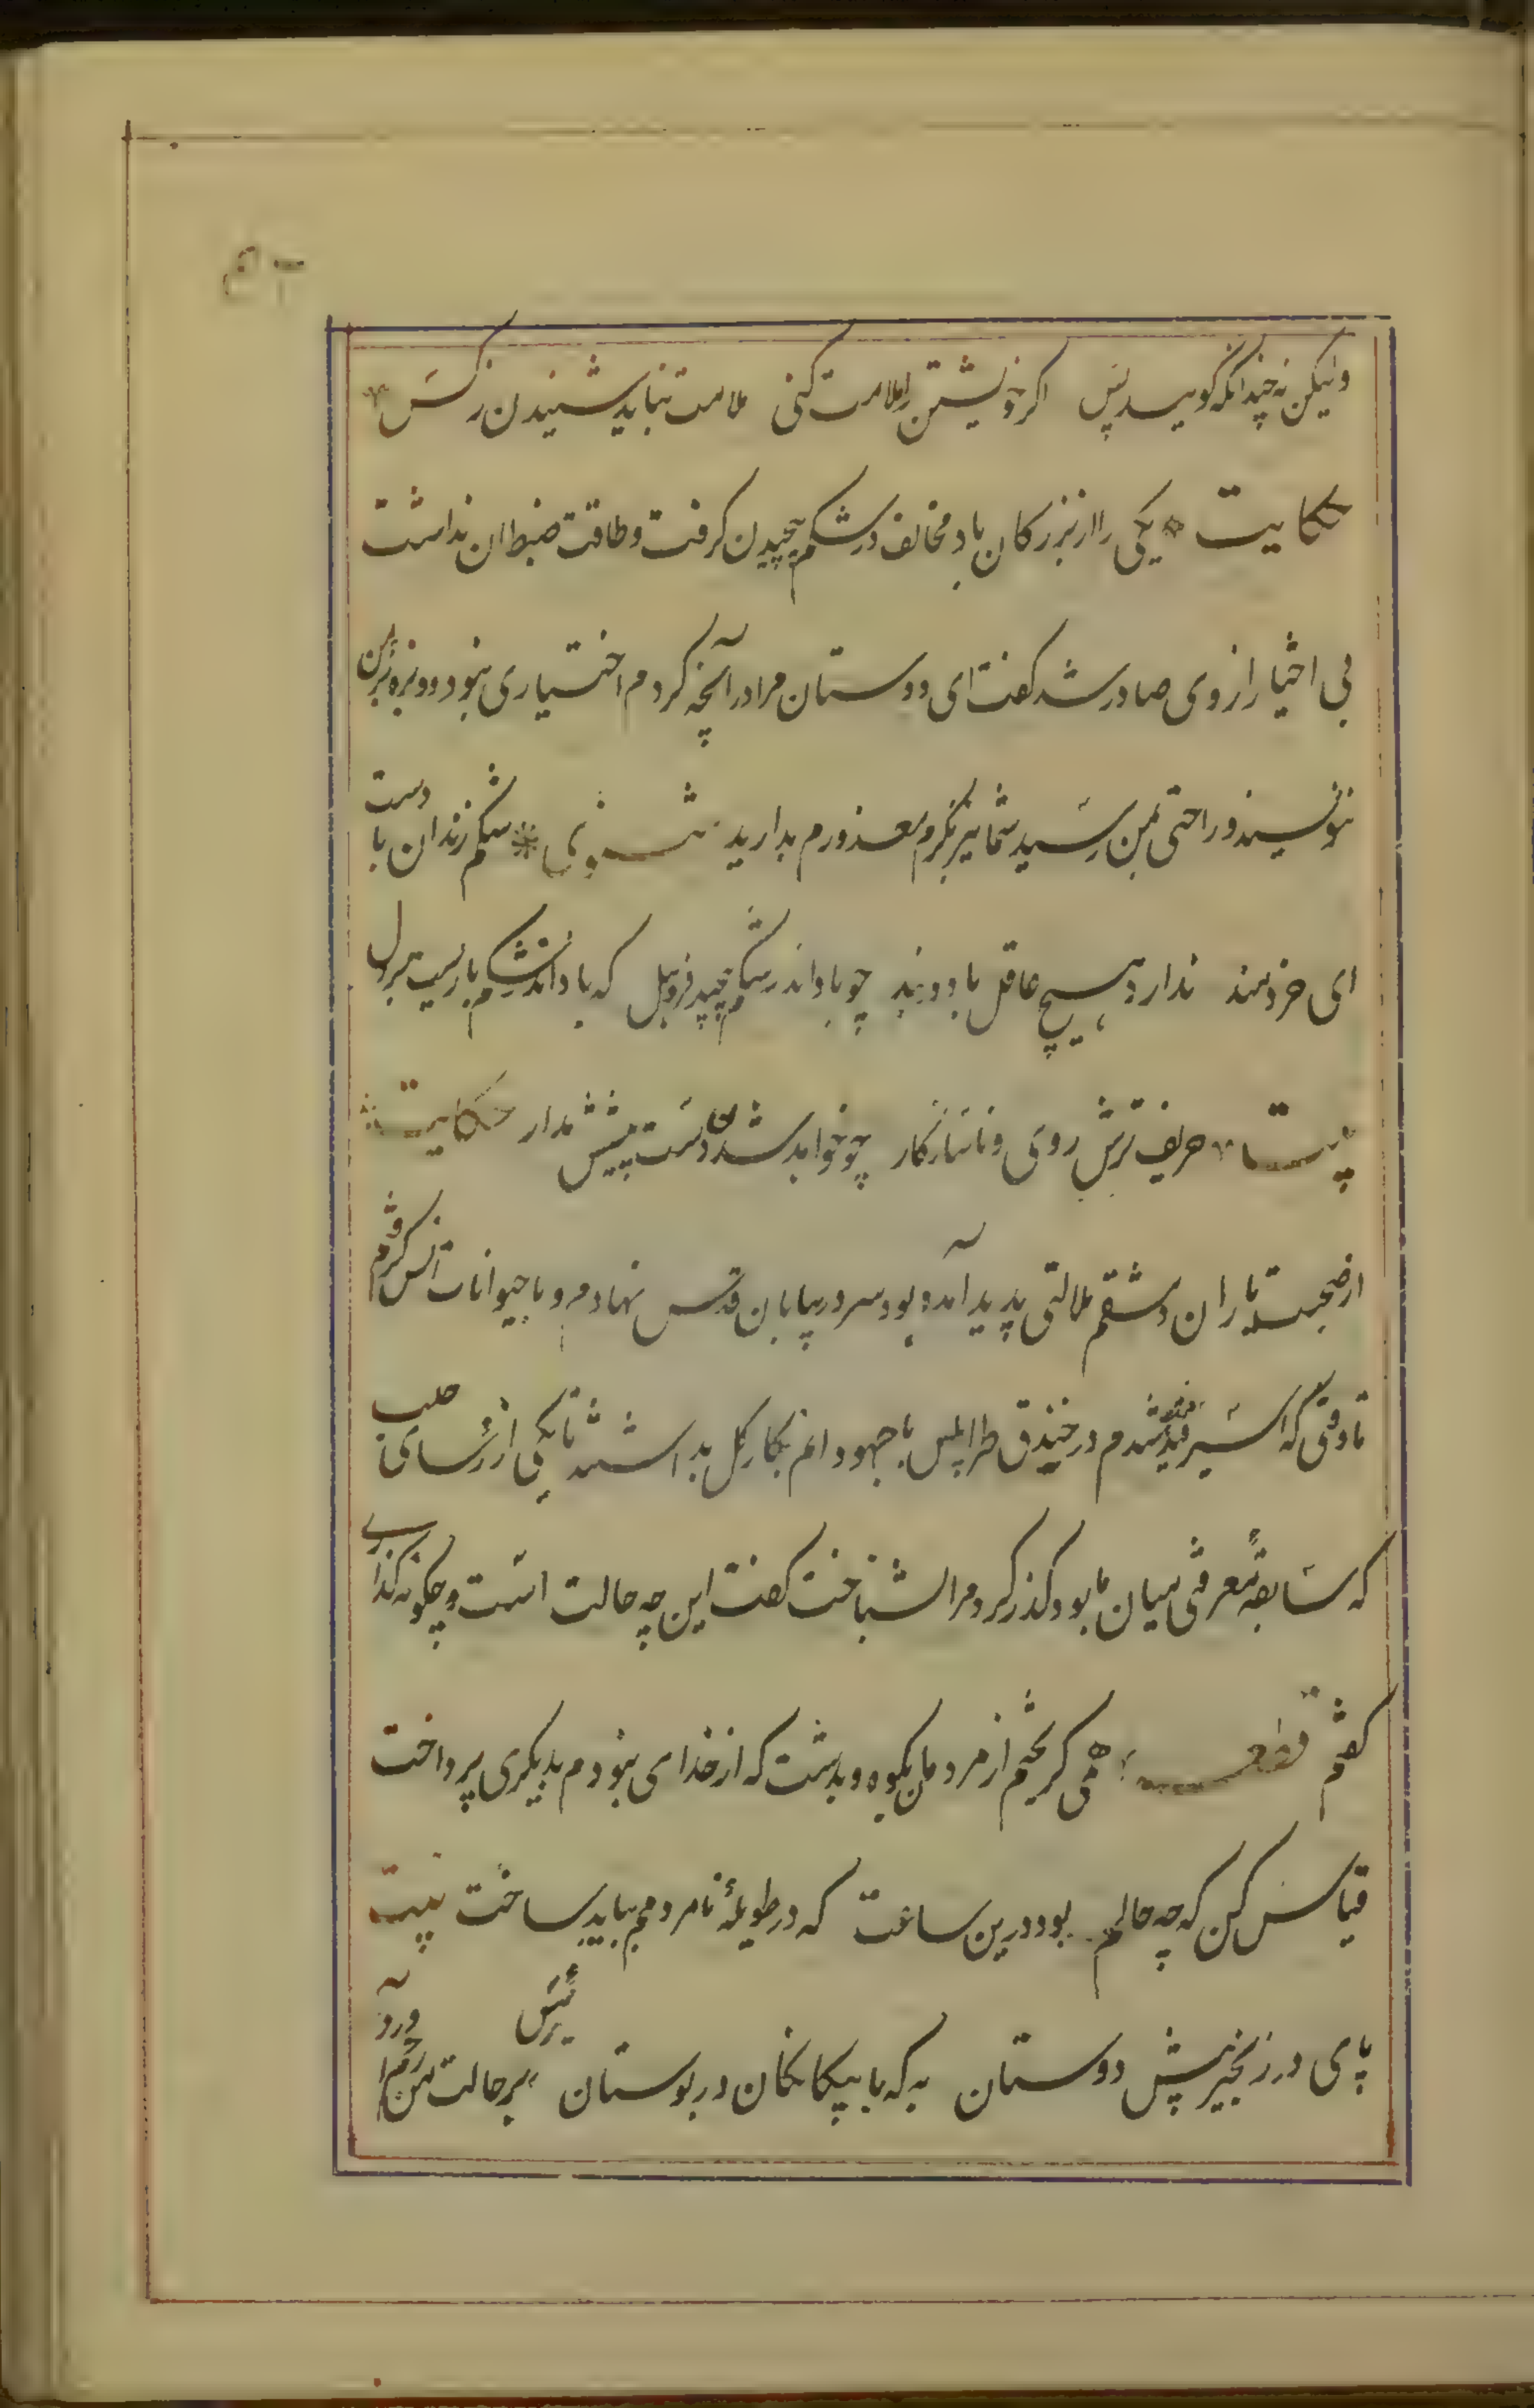 ولیکن نه چندانکه گویند بس اکر خویشتن را ملامت کنی ملامت نباید شنیدن ز کس
حکایت یکی را از بزرکان باد مخالف در شکم پیچیدن کرفت و طاقت ضبط ان نداشت
بی اختیار از وی صادر شد کفت ای دوستان مرا در آنچه کردم اختیاری نبود و بزه بر من
ننویسند و راحتی بمن رسید شما نیز بکرم معذورم بدارید مثنوی شکم زندان باد است
ای خردمند ندارد هیچ عاقل باد در بند چو باد اندر شکم پیچد فروهل که باد اندر شکم باریست بر دل
بیت حریف ترش روی و ناسازکار چو خواهد شدن دست پیشش مدار حکایت
از صحبت یاران دمشقم ملالتی پدید آمده بود سر در بیابان قدس نهادم و با حیوانات انس کرفتم
تا وقتی که اسیر قید فرنک شدم در خندق طرابلس با جهودانم بکار کل بداشتند تا یکی از رؤسای حلب
که سابقه معرفتی میان ما بود کذر کرد و مرا بشناخت کفت این چه حالت است و چکونه کذاری
کفتم قطعه همی کریختم از مردمان بکوه و بدشت که از خدای نبودم بدیکری پرداخت
قیاس کن که چه حالم بود درین ساعت که در طویلهٔ نامردمم بباید ساخت بیت
پای در زنجیر پیش دوستان به که با بیکانکان در بوستان بر حالت من رحم آورد